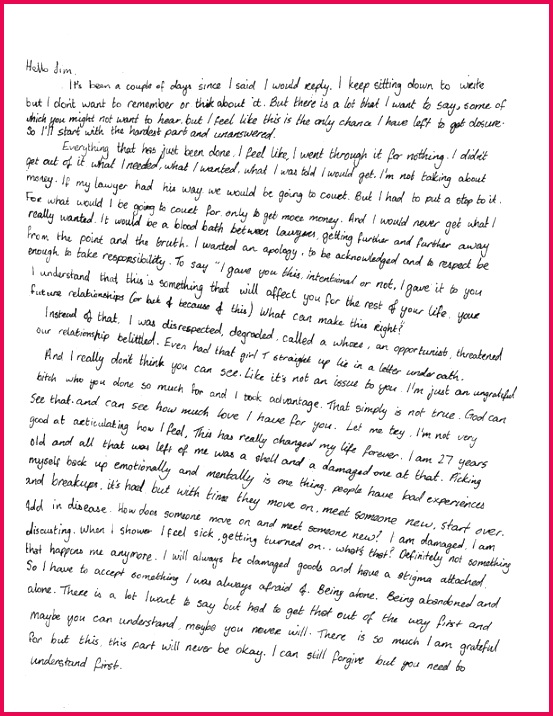 Hello Jim.
It's been a couple of days since I said I would reply. I keep sitting down to write
but I don't want to remember or think about it. But there is a lot that I want to say, some of
which you might not want to hear, but I feel like this is the only chance I have left to get closure.
So I'll start with the hardest part and unanswered.
Everything that has just been done, I feel like, I went through it for nothing. I didn't
get out of it what I needed, what I wanted, what I was told I would get. I'm not talking about
money. If my lawyer had his way we would be going to court. But I had to put a stop to it.
For what would I be going to court for, only to get more money. And I would never get what I
really wanted. It would be a blood bath between lawyers, getting further and further away
from the point and the truth. I wanted an apology, to be acknowledged and to respect be
enough to take responsibility. To say "I gave you this, intentional or not, I gave it to you
I understand that this is something that will affect you for the rest of your life, your
future relationships (or lack of because of this) What can make this right?
Instead of that, I was disrespected, degraded, called a whore, an opportunist, threatened
our relationship belittled. Even had that girl T straight up lie in a letter under oath.
And I really dont think you can see. Like it's not an issue to you. I'm just an ungrateful
bitch who you done so much for and I took advantage. That simply is not true. God can
see that. and can see how much love I have for you. Let me try. I'm not very
good at articulating how I feel. This has really changed my life forever. I am 27 years
old and all that was left of me was a shell and a damaged one at that. Picking
myself back up emotionally and mentally is one thing, people have bad experiences
and breakups, it's hard but with time they move on, meet someone new, start over.
Add in disease. How does someone move on and meet someone new? I am damaged, I am
discusting. When I shower I feel sick, getting turned on... what's that? Definitely not something
that happens me anymore. I will always be damaged goods and have a stigma attached.
So I have to accept something I was always afraid of. Being alone. Being abandoned and
alone. There is a lot I want to say but had to get that out of the way first and
maybe you can understand, maybe you never will. There is so much I am grateful
for but this, this part will never be okay. I can still forgive but you need to
understand first.